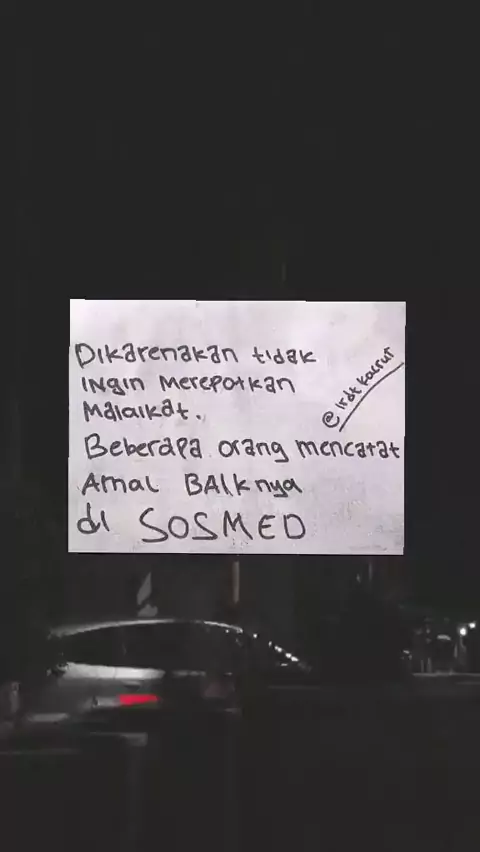 Dikarenakan tidak
ingin merepotkan
Malaikat.
Beberapa orang mencatat
Amal BAIKnya
di SOSMED